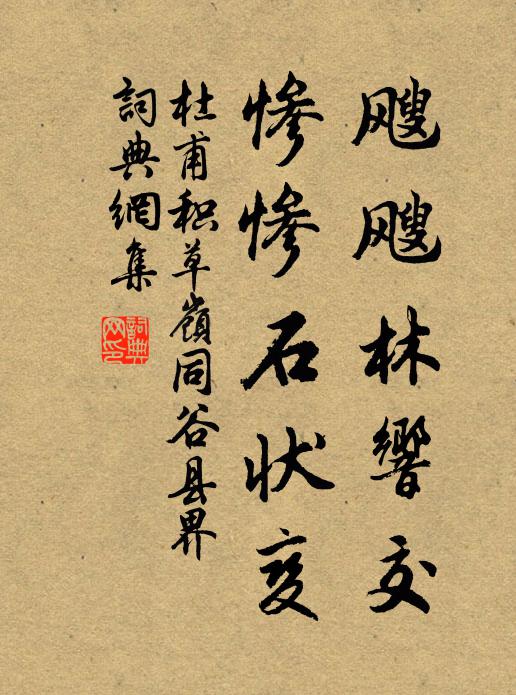 颼颼林響交
慘慘石状变
杜甫积草嶺同谷县界
詞典網集
詞典网印